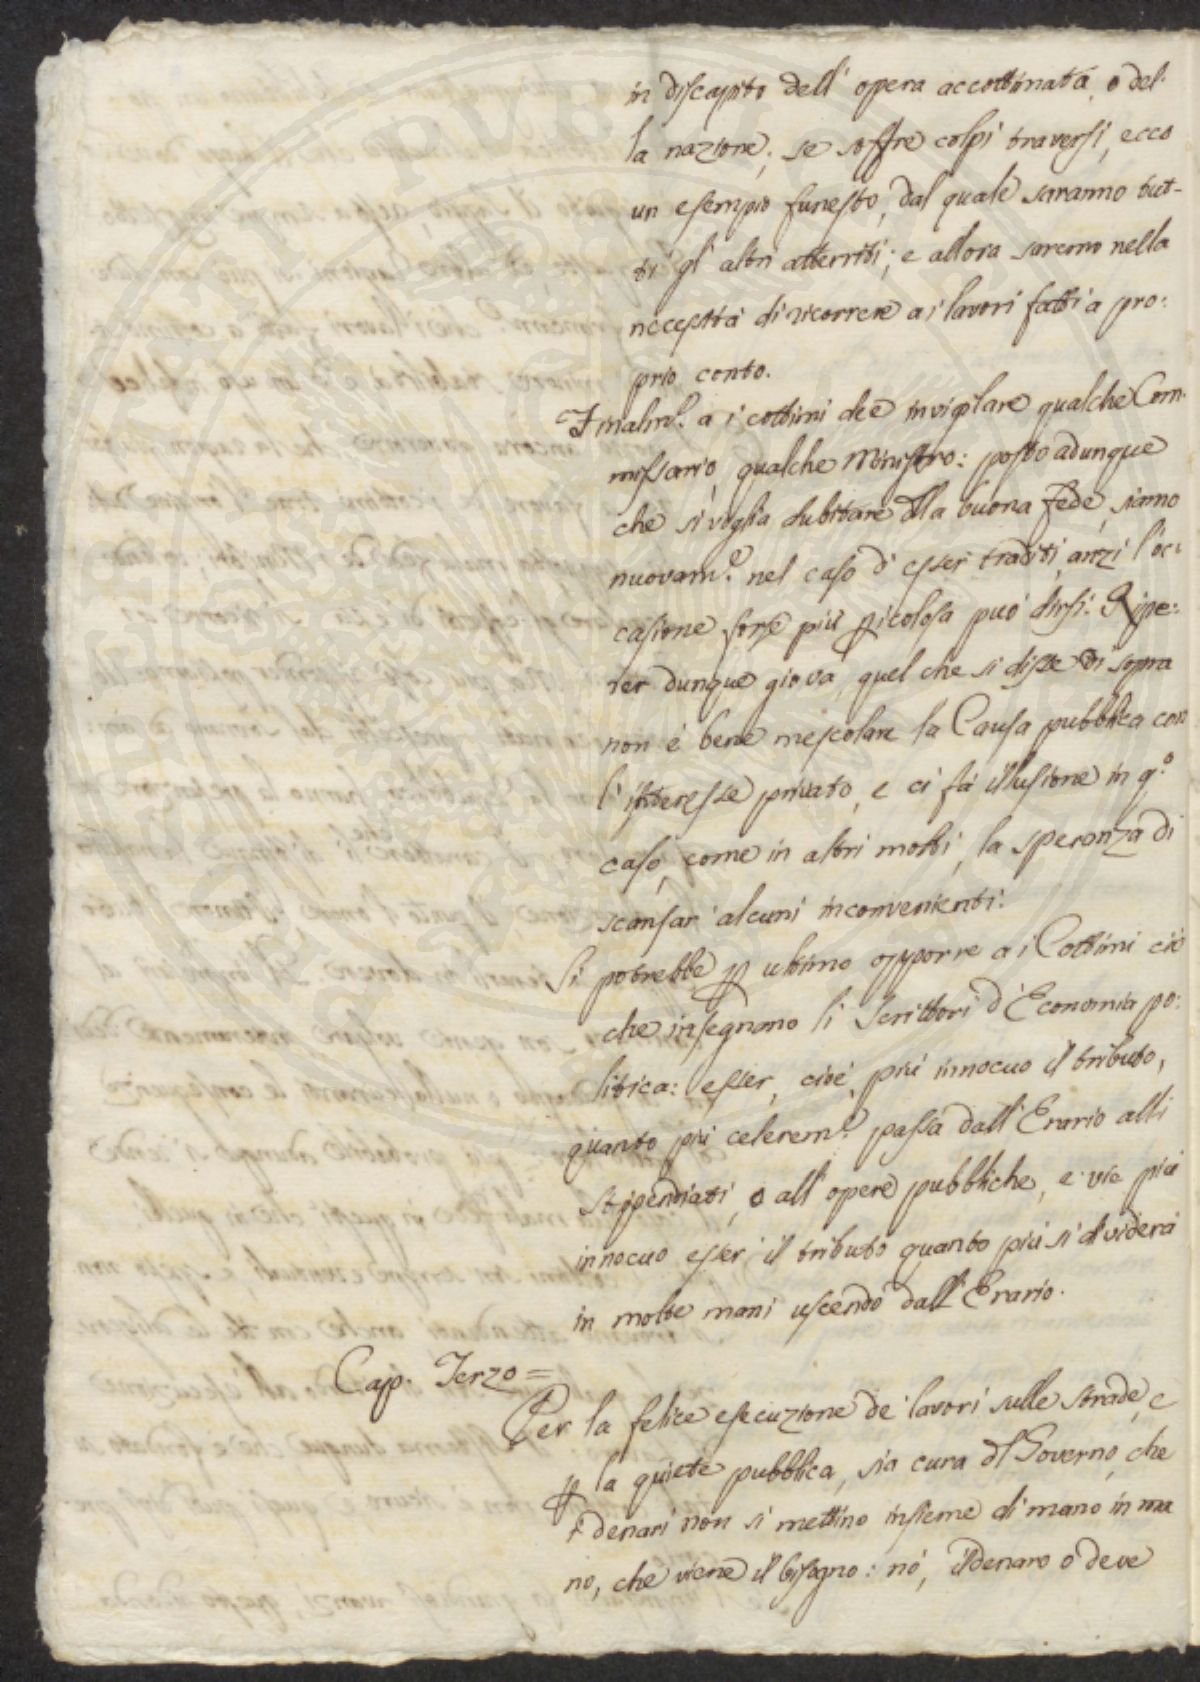 in discapito dell' opera accottimata, o del-
la nazione; se soffre colpi traversi, ecco
un esempio funesto, dal quale saranno tut-
ti gl' altri atterriti; e allora saremo nella
necessità di ricorrere a i lavori fatti a pro:
prio conto.
Finalm.e a i cottimi deè invigilare qualche Com-
missario, qualche Ministro: posto adunque
che si voglia dubitare dlla buona fede, siamo
nuovam.e nel caso d' esser traditi, anzi l'oc:
casione forse più picolosa può dirsi. Ripe:
ter dunque giova, quel che si disse di sopra
non è bene mescolare la Causa pubblica con
l' interesse privato, e ci fà illusione in q.o
caso, come in altri molti, la speranza di
scansar' alcuni inconvenienti.
Si potrebbe p ultimo opporre a i Cottimi ciò
che insegnano li Scrittori d' Economia po:
litica: esser, cioè, più innocuo il tributo,
quanto più celerem.e passa dall' Erario alli
stipendiati, o all' opere pubbliche, e via più
innocuo esser' il tributo quanto più si dividerà
in molte mani uscendo dall' Erario.
Cap. Terzo =
Per la felice esecuzione de' lavori sulle strade, e
p la quiete pubblica, sia cura dl Governo, che
i denari non si mettino insieme di mano in ma
no, che viene il bisogno: nò, il denaro o deve